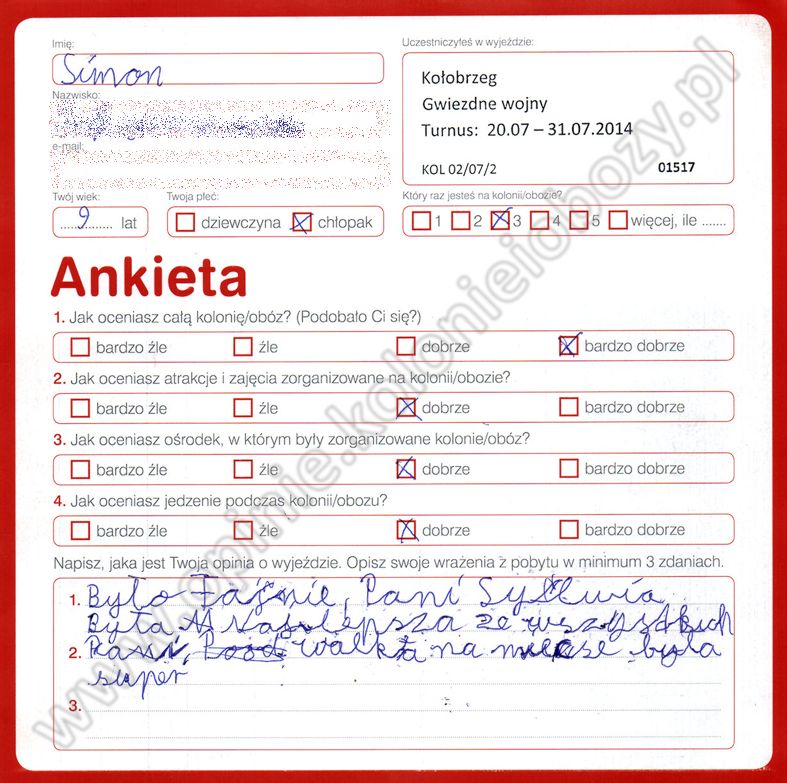 Imię:
Simon
Uczestniczyłeś w wyjeździe:
Kołobrzeg
Gwiezdne wojny
Turnus: 20.07 – 31.07.2014
KOL 02/07/2 01517
Nazwisko:
e-mail:
Twój wiek:
9 lat
Twoja płeć:
dziewczyna chłopak
Który raz jesteś na kolonii/obozie?
1 2 3 4 5 więcej, ile .......
Ankieta
1. Jak oceniasz całą kolonię/obóz? (Podobało Ci się?)
bardzo źle źle dobrze bardzo dobrze
2. Jak oceniasz atrakcje i zajęcia zorganizowane na kolonii/obozie?
bardzo źle źle dobrze bardzo dobrze
3. Jak oceniasz ośrodek, w którym były zorganizowane kolonie/obóz?
bardzo źle źle dobrze bardzo dobrze
4. Jak oceniasz jedzenie podczas kolonii/obozu?
bardzo źle źle dobrze bardzo dobrze
Napisz, jaka jest Twoja opinia o wyjeździe. Opisz swoje wrażenia z pobytu w minimum 3 zdaniach.
1. Było Fajnie, Pani Sylwia
Była Najlepsza ze wszystkich
2. Pani, walka na miecze była
super
3.
www.opinie.kolonieiobozy.pl